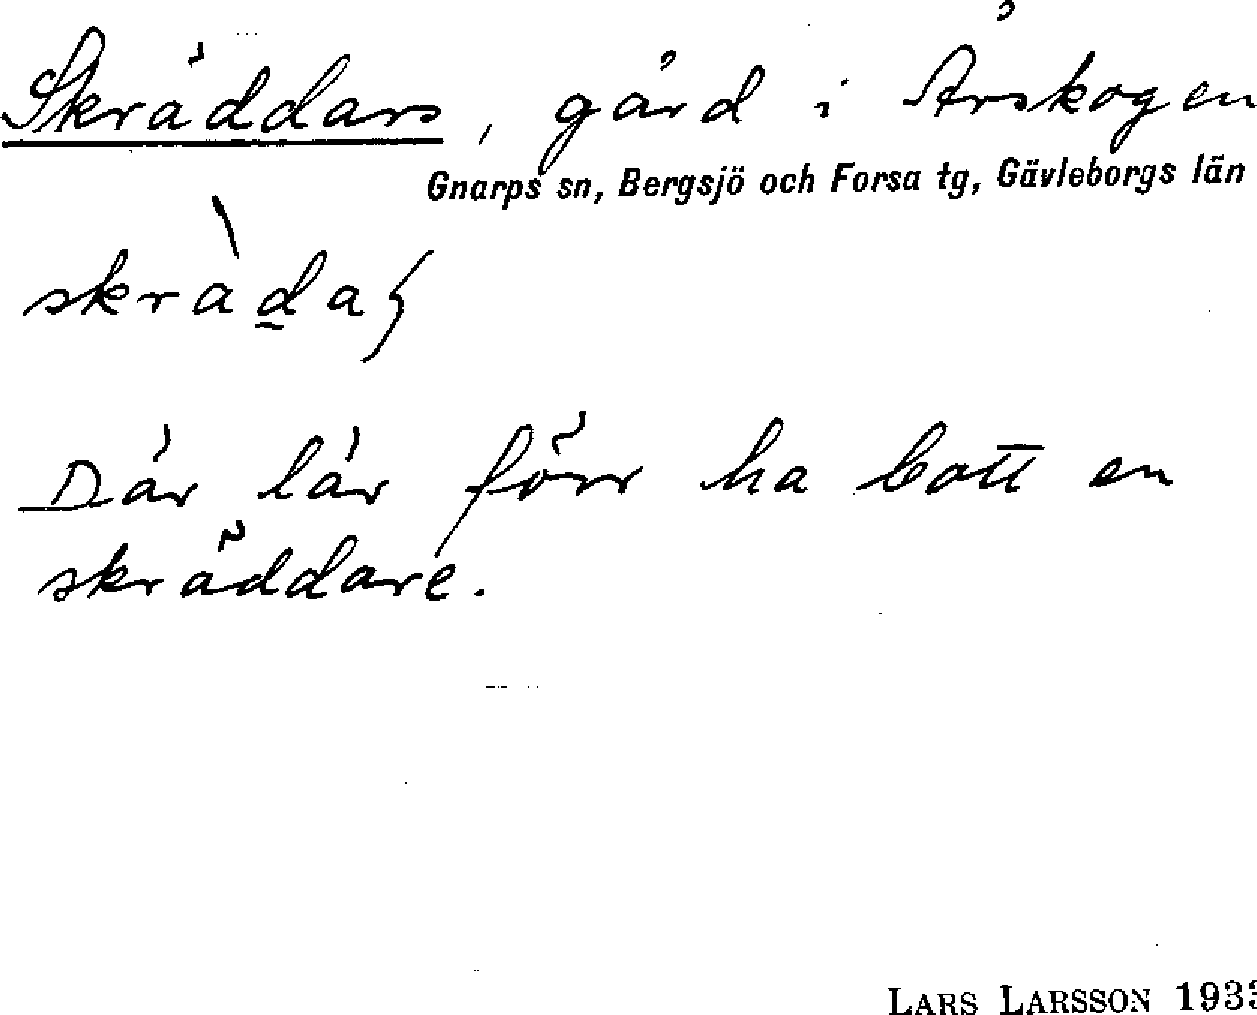 Skräddars, gård i Årskogen
Gnarps sn, Bergsjö och Forsa tg, Gävleborgs län
Där lär förr ha bott en
skräddare.
LARS LARSSON